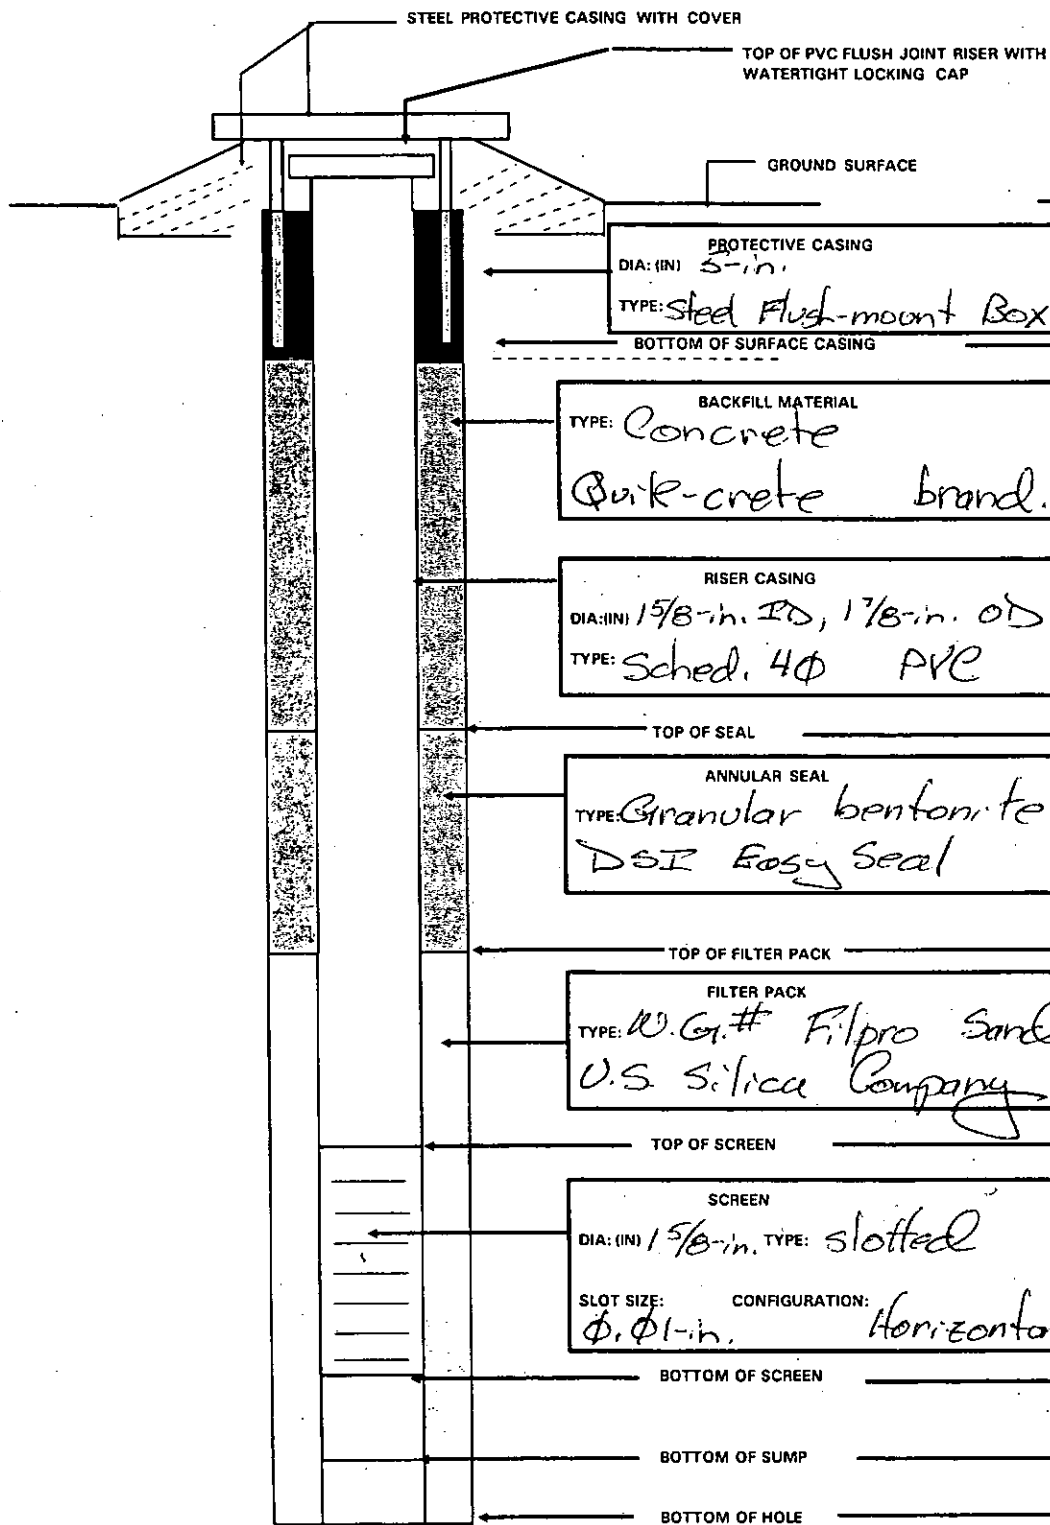 STEEL PROTECTIVE CASING WITH COVER
TOP OF PVC FLUSH JOINT RISER WITH
WATERTIGHT LOCKING CAP
GROUND SURFACE
PROTECTIVE CASING
DIA: (IN) 5-in.
TYPE: Steel Flush-mount Box
BOTTOM OF SURFACE CASING
BACKFILL MATERIAL
TYPE: Concrete
Quik-crete brand.
RISER CASING
DIA:(IN) 1 5/8-in. ID, 1 7/8-in. OD
TYPE: Sched. 40 PVC
TOP OF SEAL
ANNULAR SEAL
TYPE: Granular bentonite
DSI Easy Seal
TOP OF FILTER PACK
FILTER PACK
TYPE: W.G.# Filpro Sand
U.S. Silica Company
TOP OF SCREEN
SCREEN
DIA: (IN) 1 5/8-in. TYPE: slotted
SLOT SIZE: CONFIGURATION:
0.01-in. Horizonta
BOTTOM OF SCREEN
BOTTOM OF SUMP
BOTTOM OF HOLE